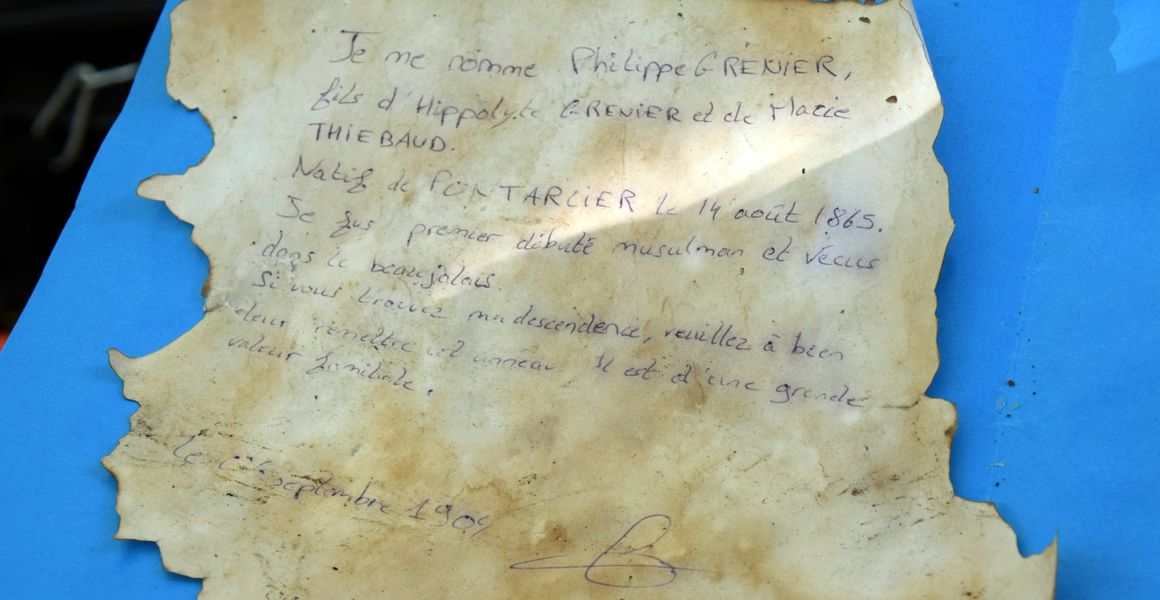 Je me nomme Philippe GRENIER,
fils d'Hippolyte GRENIER et de Marie
THIEBAUD.
Natif de PONTARLIER le 14 août 1865.
Je fus premier débuté musulman et vécus
dans le beaujolais.
Si vous trouvez ma descendence, veuillez à bien
leur remettre cet anneau Il est d'une grande
valeur familiale.
Le septembre 1904